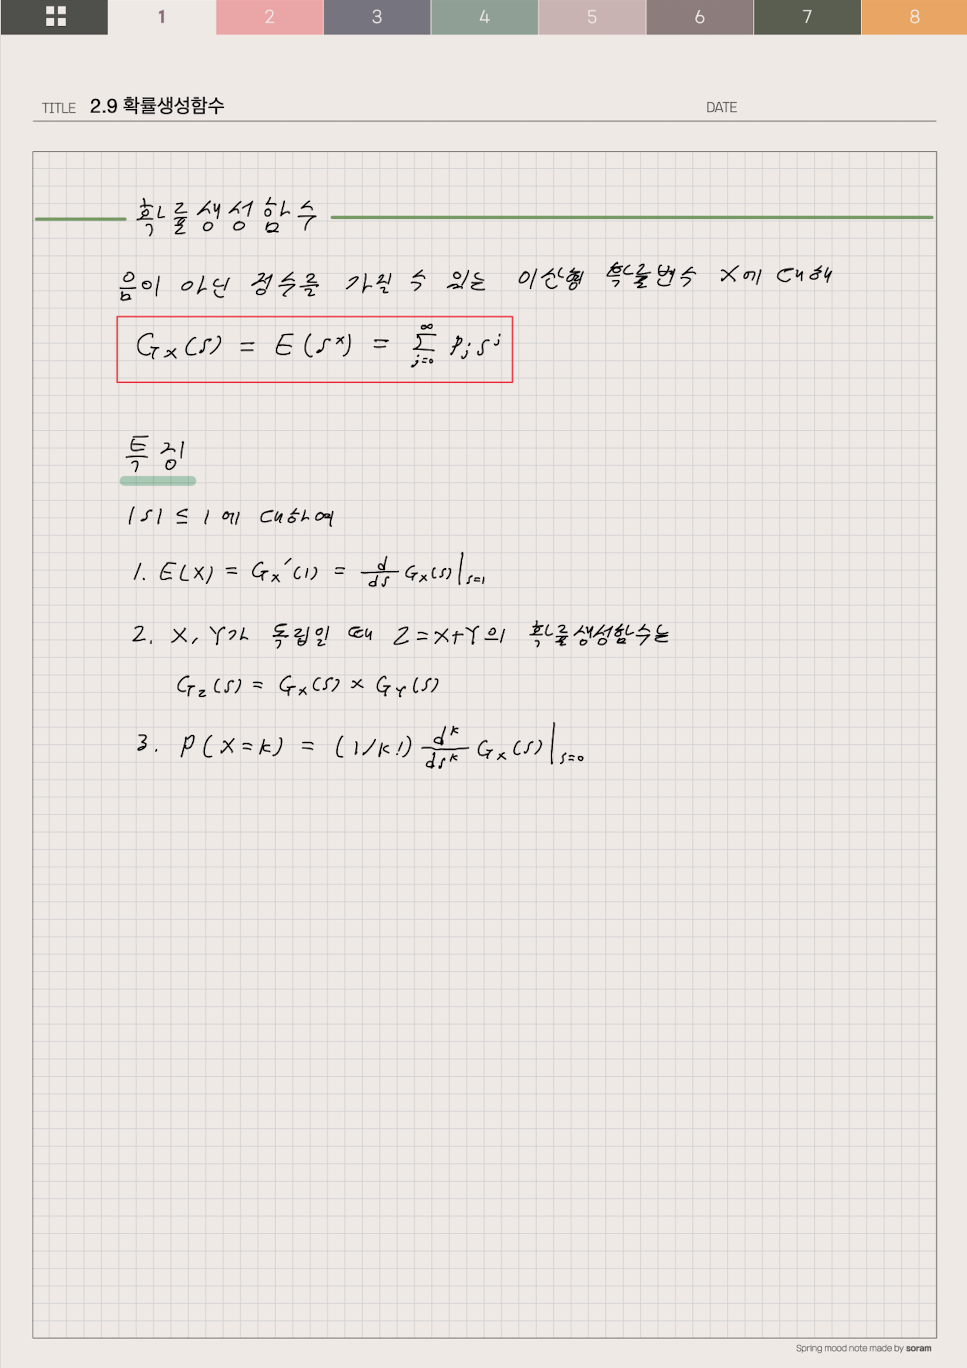 1 2 3 4 5 6 7 8
TITLE 2.9 확률생성함수 DATE
확률생성함수
음이 아닌 정수를 가질 수 있는 이산형 확률변수 X에 대해
G_X(s) = E(s^X) = ∑_{j=0}^{∞} p_j s^j
특징
|s| ≤ 1 에 대하여
1. E(X) = G_X′(1) = d/ds G_X(s)|_{s=1}
2. X, Y가 독립일 때 Z=X+Y의 확률생성함수는
G_Z(s) = G_X(s) × G_Y(s)
3. P(X=k) = (1/k!) d^k/ds^k G_X(s)|_{s=0}
Spring mood note made by soram